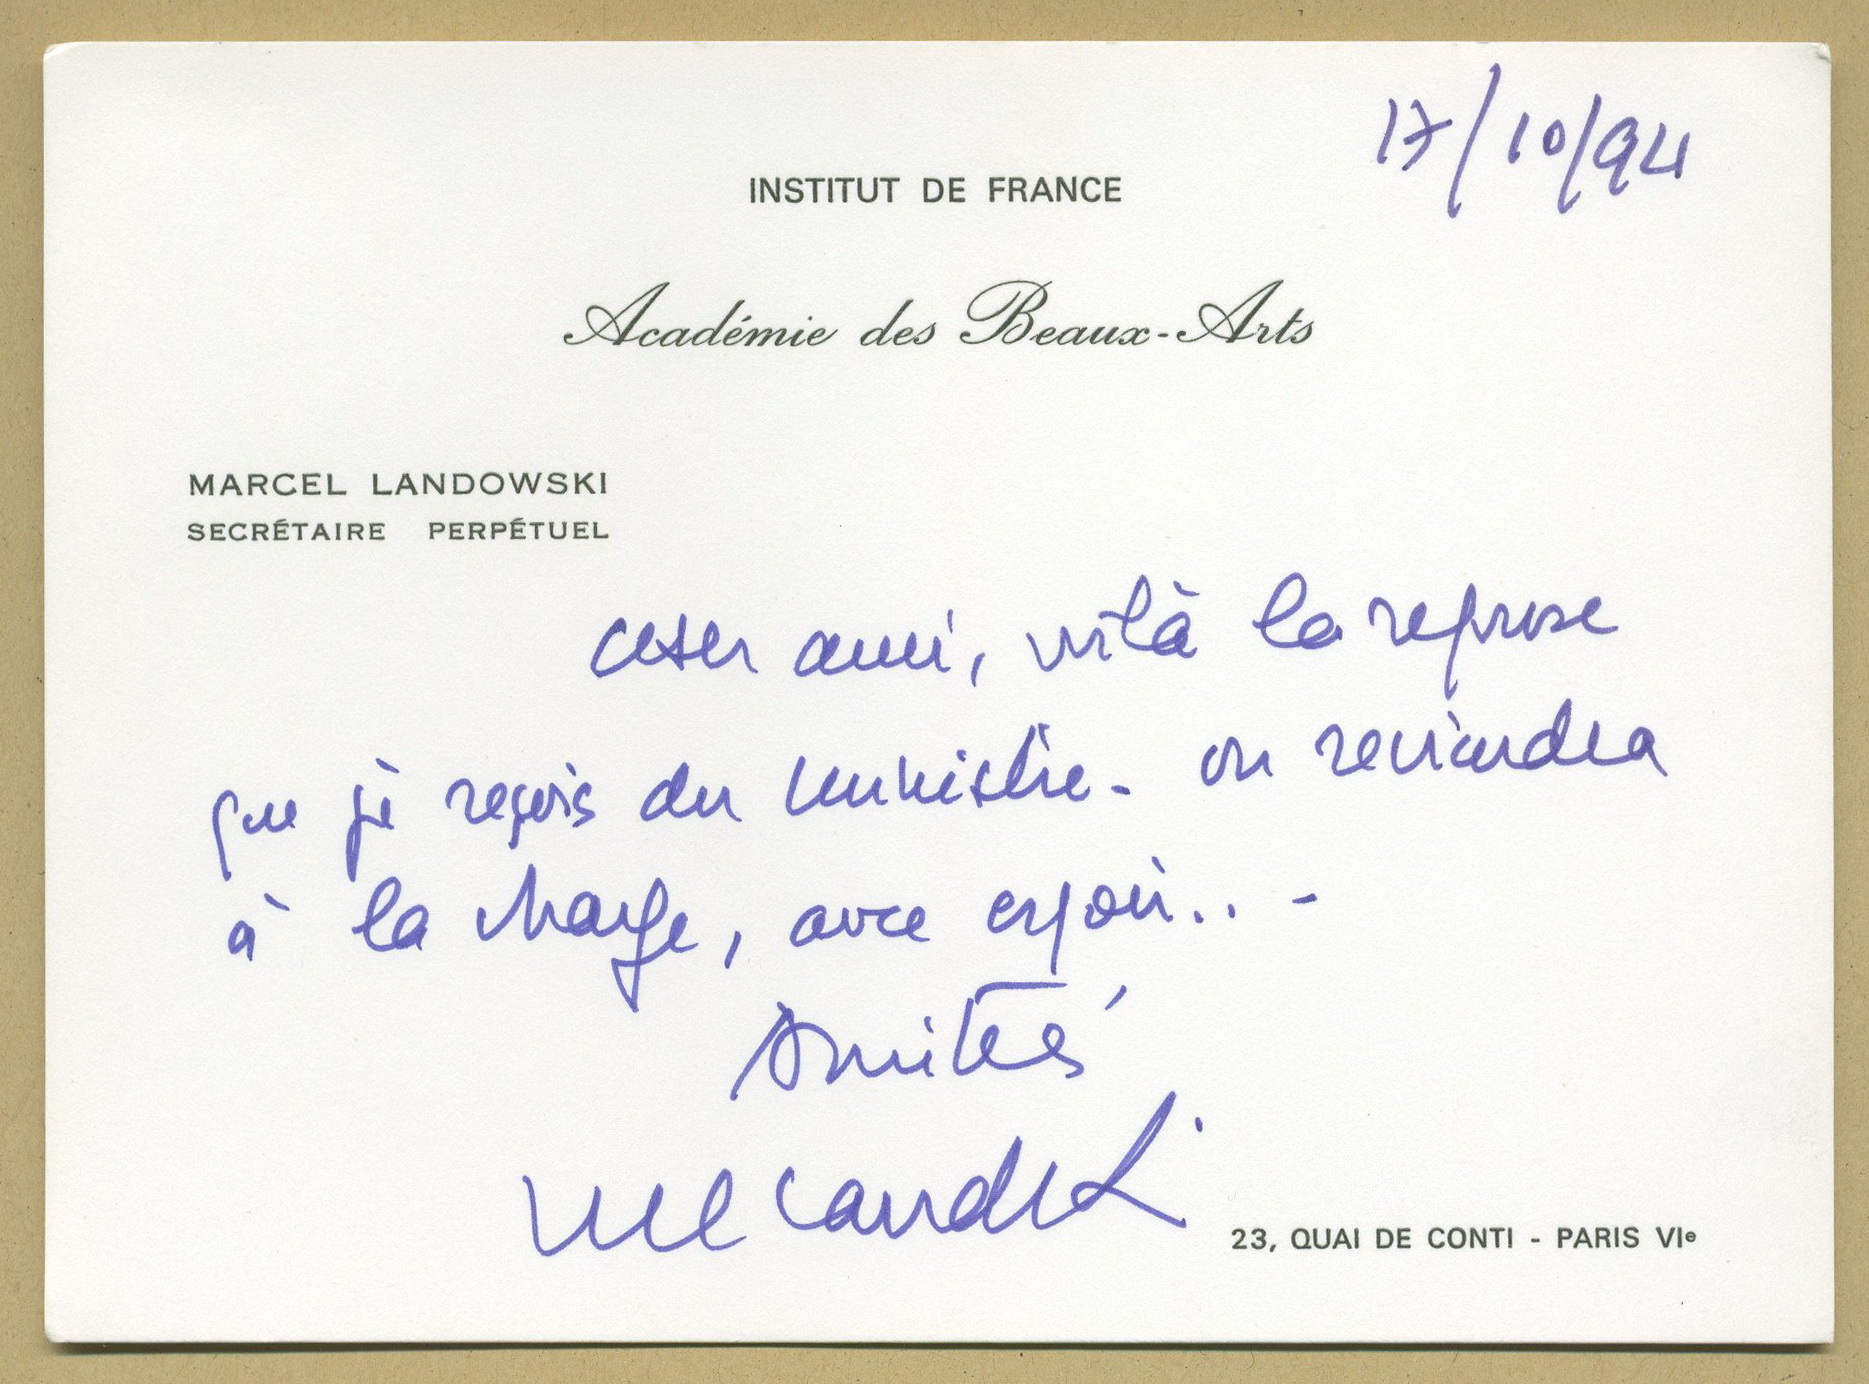 17/10/94
INSTITUT DE FRANCE
Académie des Beaux-Arts
MARCEL LANDOWSKI
SECRÉTAIRE PERPÉTUEL
cher ami, voilà la réponse
que je reçois du ministre - on reviendra
à la charge, avec espoir.. -
Amitiés
M Landowski
23, QUAI DE CONTI - PARIS VIe